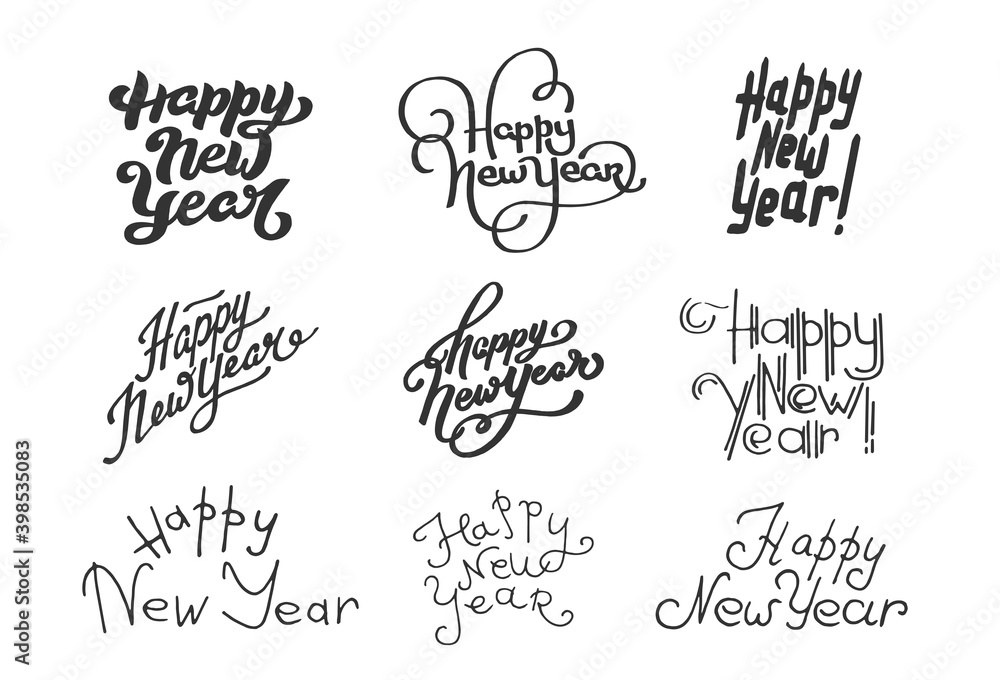 Happy
New
Year
Happy
New Year
Happy
New
Year!
Happy
New Year
happy
New Year
Happy
New
Year!!
Happy
New Year
Happy
New
Year
Happy
New Year
Adobe Stock | #398535083